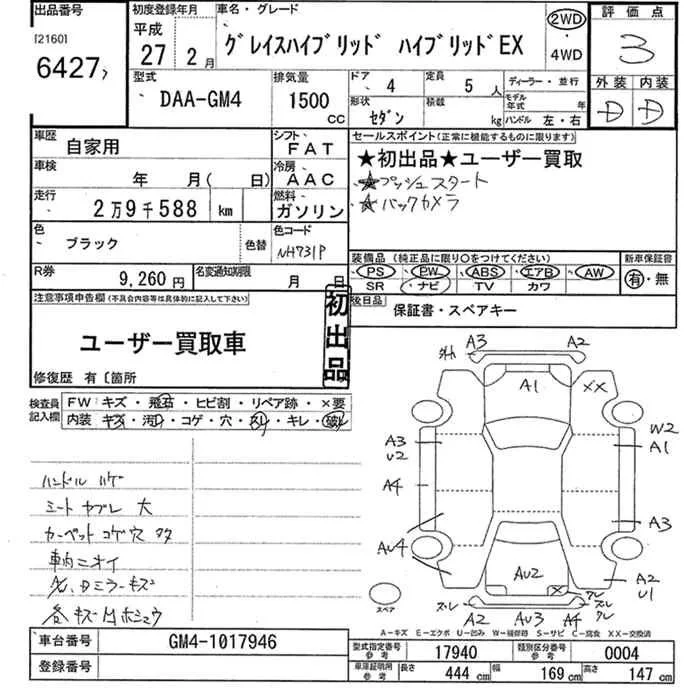 出品番号
[2160]
6427
初度登録年月
平成
27 2月
車名・グレード
グレイスハイブリッド ハイブリッドEX
2WD
・
4WD
評価点
3
外装 内装
D D
型式
DAA-GM4
排気量
1500
CC
ドア 4
定員 5 人
形状 セダン
積載 kg
ディーラー・並行
モデル年式 年
ハンドル 左・右
車歴 自家用
シフト FAT
車検 年 月( 日)
冷房 AAC
走行 2万9千588 km
燃料 ガソリン
色 ブラック
色替
色コード NH731P
R券 9,260円
名変通知期限 月 日
セールスポイント(正常に機能するものに限ります)
★初出品★ユーザー買取
★プッシュスタート
★バックカメラ
装備品(純正品に限り○をつけてください)
PS PW ABS エアB AW
SR ナビ TV カワ
新車保証書
有・無
後日品
保証書・スペアキー
注意事項申告欄(不具合内容等は具体的に記入して下さい)
ユーザー買取車
初出品
修復歴 有〔箇所
検査員記入欄
FW:キズ・飛石・ヒビ割・リペア跡・×要
内装 キズ・汚れ・コゲ・穴・スレ・キレ・破れ
ハンドル ハゲ
シート ヤブレ 大
カーペット コゲ穴 タタ
車内ニオイ
ミラーキズ
各キズ凹ホシュウ
外
A3 A2
A1
XX
W2
A1
A3
U2
A4
A3
AU4
A2
U1
AU2
X
スレ
A2 AU3 A4
スペア
A-キズ E-エクボ U-凹み W-補修跡 S-サビ C-腐食 XX-交換済
車台番号 GM4-1017946
登録番号
型式指定番号参考 17940
類別区分番号参考 0004
車庫証明用参考
長さ 444 cm
幅 169 cm
高さ 147 cm